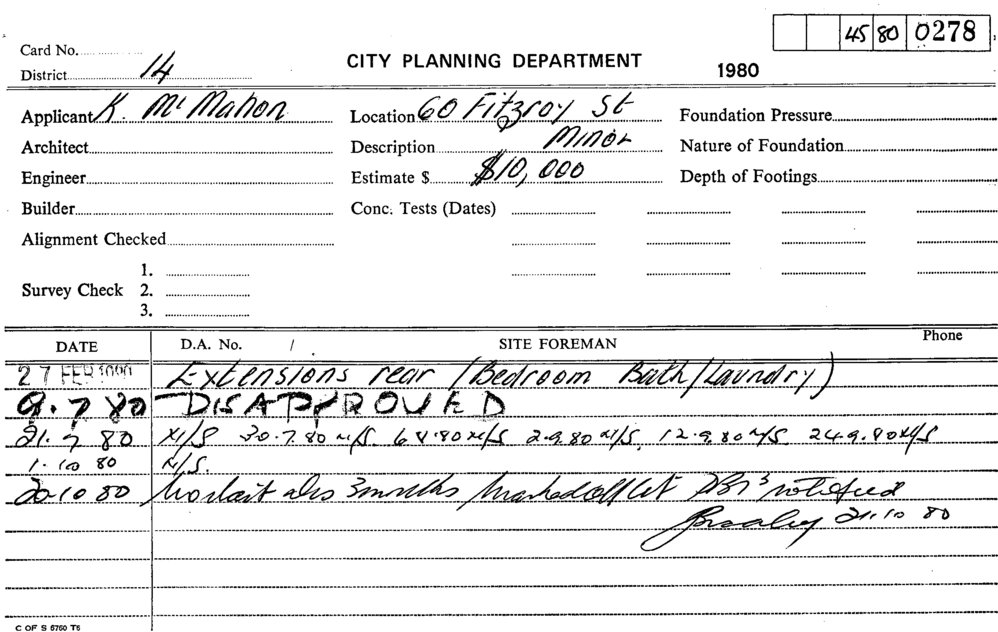 45 80 0278
Card No.
District 14
CITY PLANNING DEPARTMENT
1980
Applicant K. McMahon
Location 60 Fitzroy St
Foundation Pressure
Architect
Description Minor
Nature of Foundation
Engineer
Estimate $ $10,000
Depth of Footings
Builder
Conc. Tests (Dates)
Alignment Checked
1.
Survey Check 2.
3.
DATE D.A. No. / SITE FOREMAN Phone
27 FEB 1980 Extensions rear (Bedroom Bath/Laundry)
9.7 80 DISAPPROVED
21.7 80 N/S 30.7.80 N/S 6 8.80 N/S 2.9.80 N/S. 12.9.80 N/S. 24.9.80 N/S
1.10 80 N/S.
20.10 80 3 months notified
21.10 80
C OF S 6760 T6